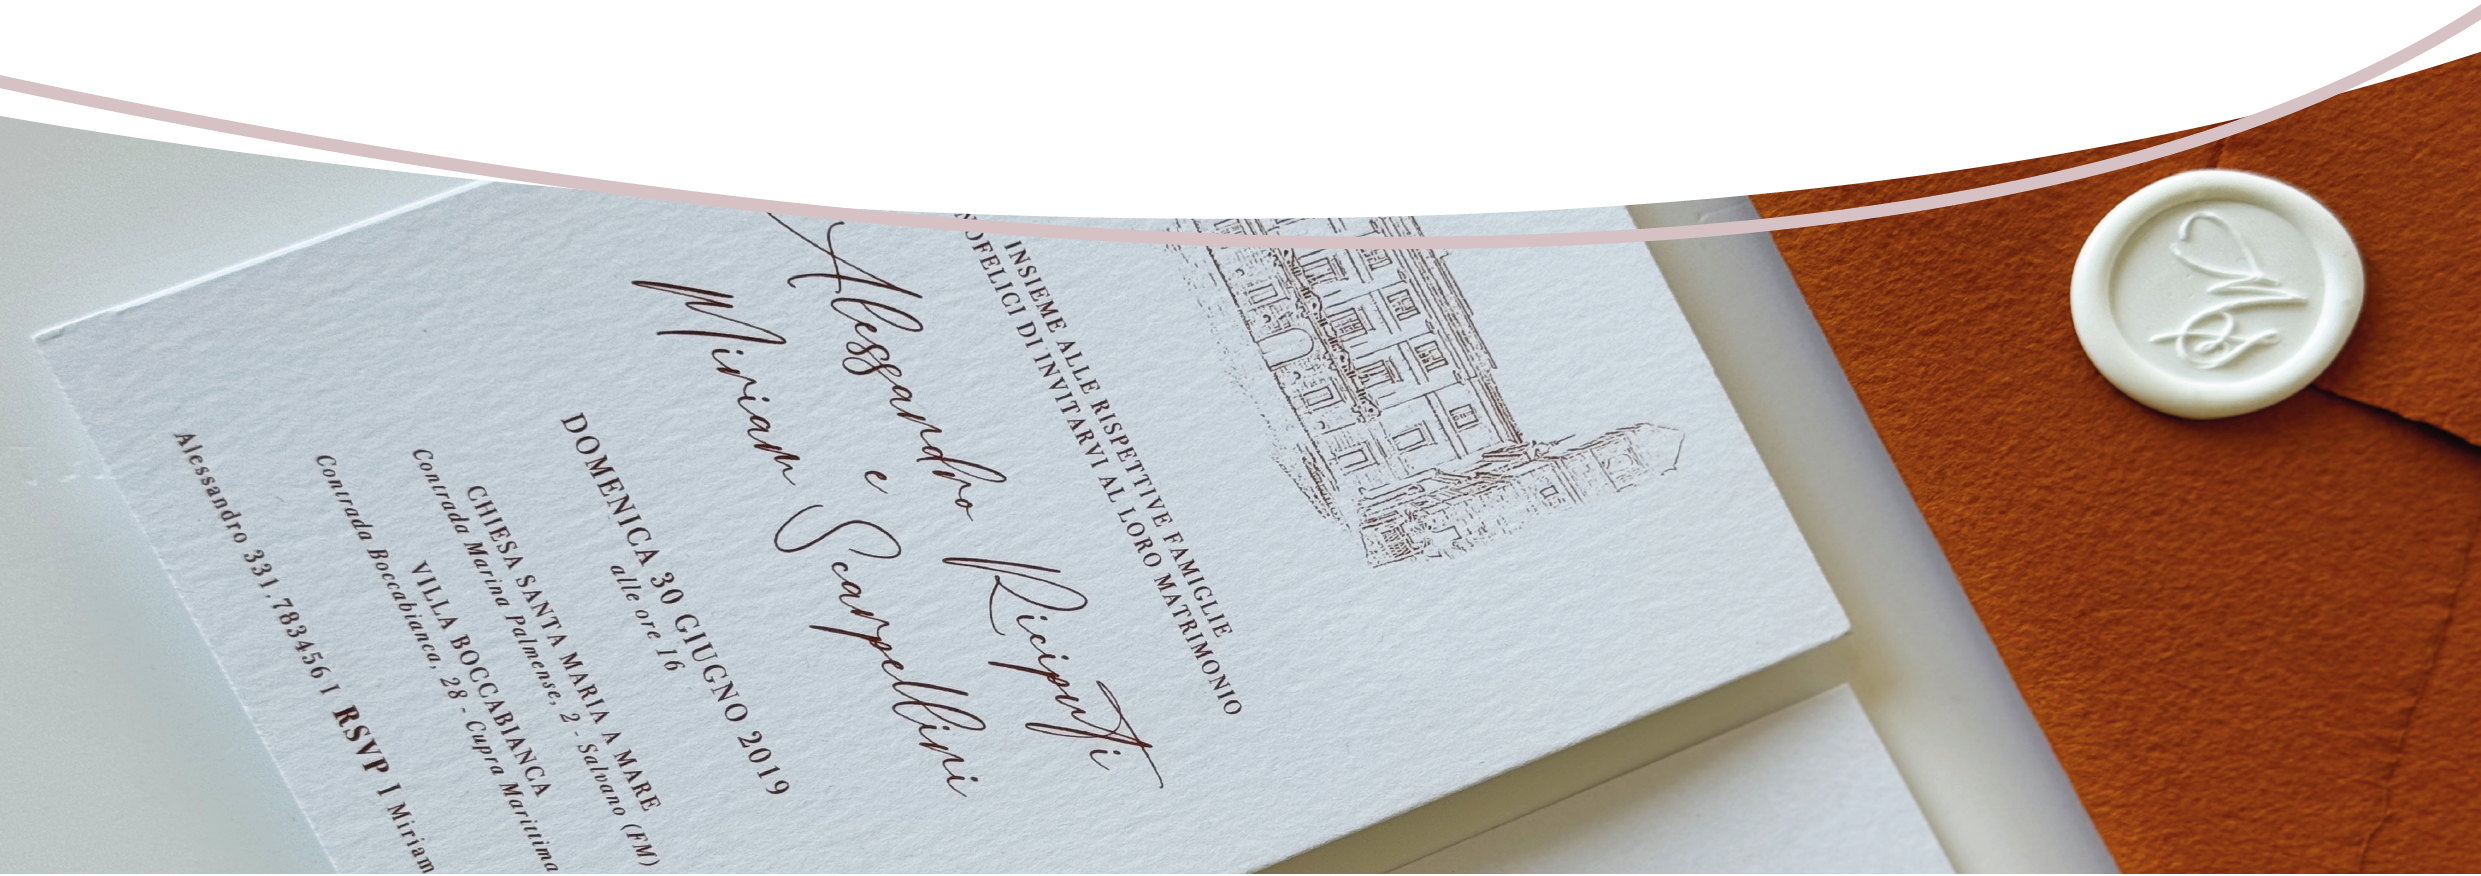 INSIEME ALLE RISPETTIVE FAMIGLIE
FELICI DI INVITARVI AL LORO MATRIMONIO
Alessandro Riciputi
e
Miriam Scarpellini
DOMENICA 30 GIUGNO 2019
alle ore 16
CHIESA SANTA MARIA A MARE
Contrada Marina Palmense, 2 - Salvano (FM)
VILLA BOCCABIANCA
Contrada Boccabianca, 28 - Cupra Marittima
Alessandro 331.783456 I RSVP I Miriam